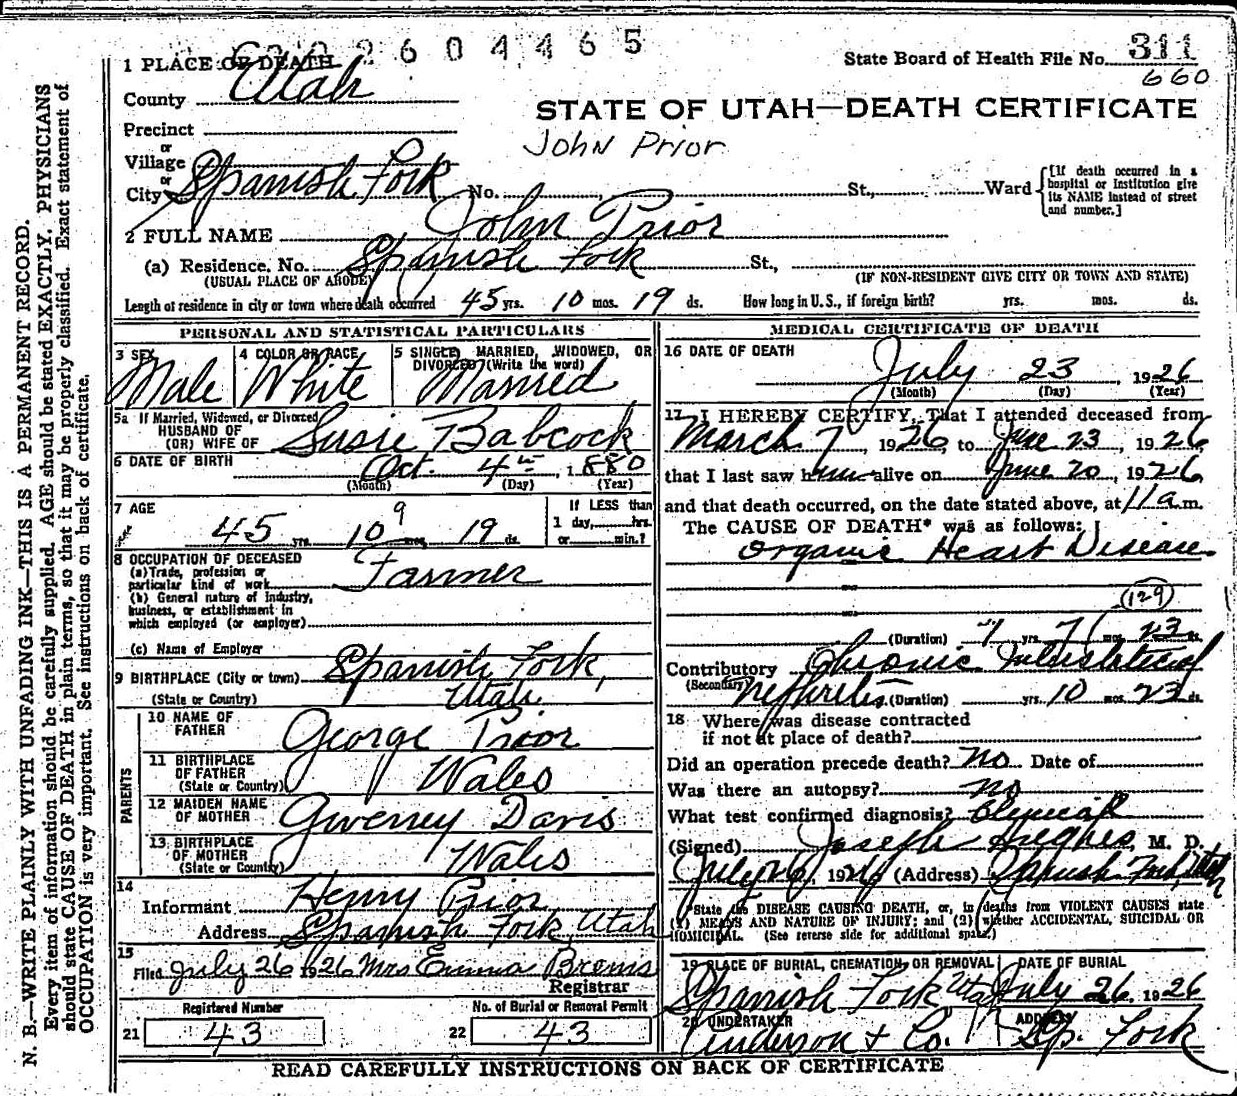 2604465
State Board of Health File No. 311
660
1 PLACE OF DEATH
County Utah
STATE OF UTAH—DEATH CERTIFICATE
Precinct
John Prior
or
Village
or
City Spanish Fork No. St., Ward [If death occurred in a hospital or Institution give its NAME instead of street and number.]
2 FULL NAME John Prior
(a) Residence, No. Spanish Fork St.,
(USUAL PLACE OF ABODE) (IF NON-RESIDENT GIVE CITY OR TOWN AND STATE)
Length of residence in city or town where death occurred 45 yrs. 10 mos. 19 ds. How long in U.S., if foreign birth? yrs. mos. ds.
PERSONAL AND STATISTICAL PARTICULARS
3 SEX 4 COLOR OR RACE 5 SINGLE, MARRIED, WIDOWED, OR
DIVORCED (Write the word)
Male White Married
5a If Married, Widowed, or Divorced
HUSBAND OF
(OR) WIFE OF Susie Babcock
6 DATE OF BIRTH Oct. 4th 1880
(Month) (Day) (Year)
7 AGE If LESS than
45 yrs. 10 9 mos. 19 ds. 1 day, hrs.
or min.?
8 OCCUPATION OF DECEASED
(a) Trade, profession or
particular kind of work Farmer
(b) General nature of Industry,
business, or establishment in
which employed (or employer)
(c) Name of Employer
9 BIRTHPLACE (City or town) Spanish Fork,
(State or Country) Utah
PARENTS
10 NAME OF
FATHER George Prior
11 BIRTHPLACE
OF FATHER
(State or Country) Wales
12 MAIDEN NAME
OF MOTHER Gwenney Davis
13 BIRTHPLACE
OF MOTHER
(State or Country) Wales
14
Informant Henry Prior
Address Spanish Fork, Utah
15
Filed July 26 1926 Mrs Emma Brems
Registrar
Registered Number No. of Burial or Removal Permit
21 43 22 43
MEDICAL CERTIFICATE OF DEATH
16 DATE OF DEATH
July 23, 1926
(Month) (Day) (Year)
17 I HEREBY CERTIFY, That I attended deceased from
March 7, 1926, to June 23, 1926
that I last saw him alive on June 20, 1926
and that death occurred, on the date stated above, at 11 a m.
The CAUSE OF DEATH* was as follows:
Organic Heart Disease
(129)
(Duration) yrs. 7 mos. 23 ds.
Contributory Chronic Interstitial
(Secondary) Nephritis (Duration) yrs. 10 mos. 23 ds.
18 Where was disease contracted
if not at place of death?
Did an operation precede death? No Date of
Was there an autopsy? no
What test confirmed diagnosis? Clinical
(Signed) Joseph Hughes, M. D.
July 26, 1926 (Address) Spanish Fork, Utah
*State the DISEASE CAUSING DEATH, or, in deaths from VIOLENT CAUSES state
(1) MEANS AND NATURE OF INJURY; and (2) whether ACCIDENTAL, SUICIDAL OR
HOMICIDAL. (See reverse side for additional space.)
19 PLACE OF BURIAL, CREMATION, OR REMOVAL DATE OF BURIAL
Spanish Fork Utah July 26, 1926
20 UNDERTAKER ADDRESS
Anderson & Co. Sp. Fork
READ CAREFULLY INSTRUCTIONS ON BACK OF CERTIFICATE
N. B.—WRITE PLAINLY WITH UNFADING INK—THIS IS A PERMANENT RECORD.
Every item of information should be carefully supplied. AGE should be stated EXACTLY. PHYSICIANS
should state CAUSE OF DEATH in plain terms, so that it may be properly classified. Exact statement of
OCCUPATION is very important. See instructions on back of certificate.